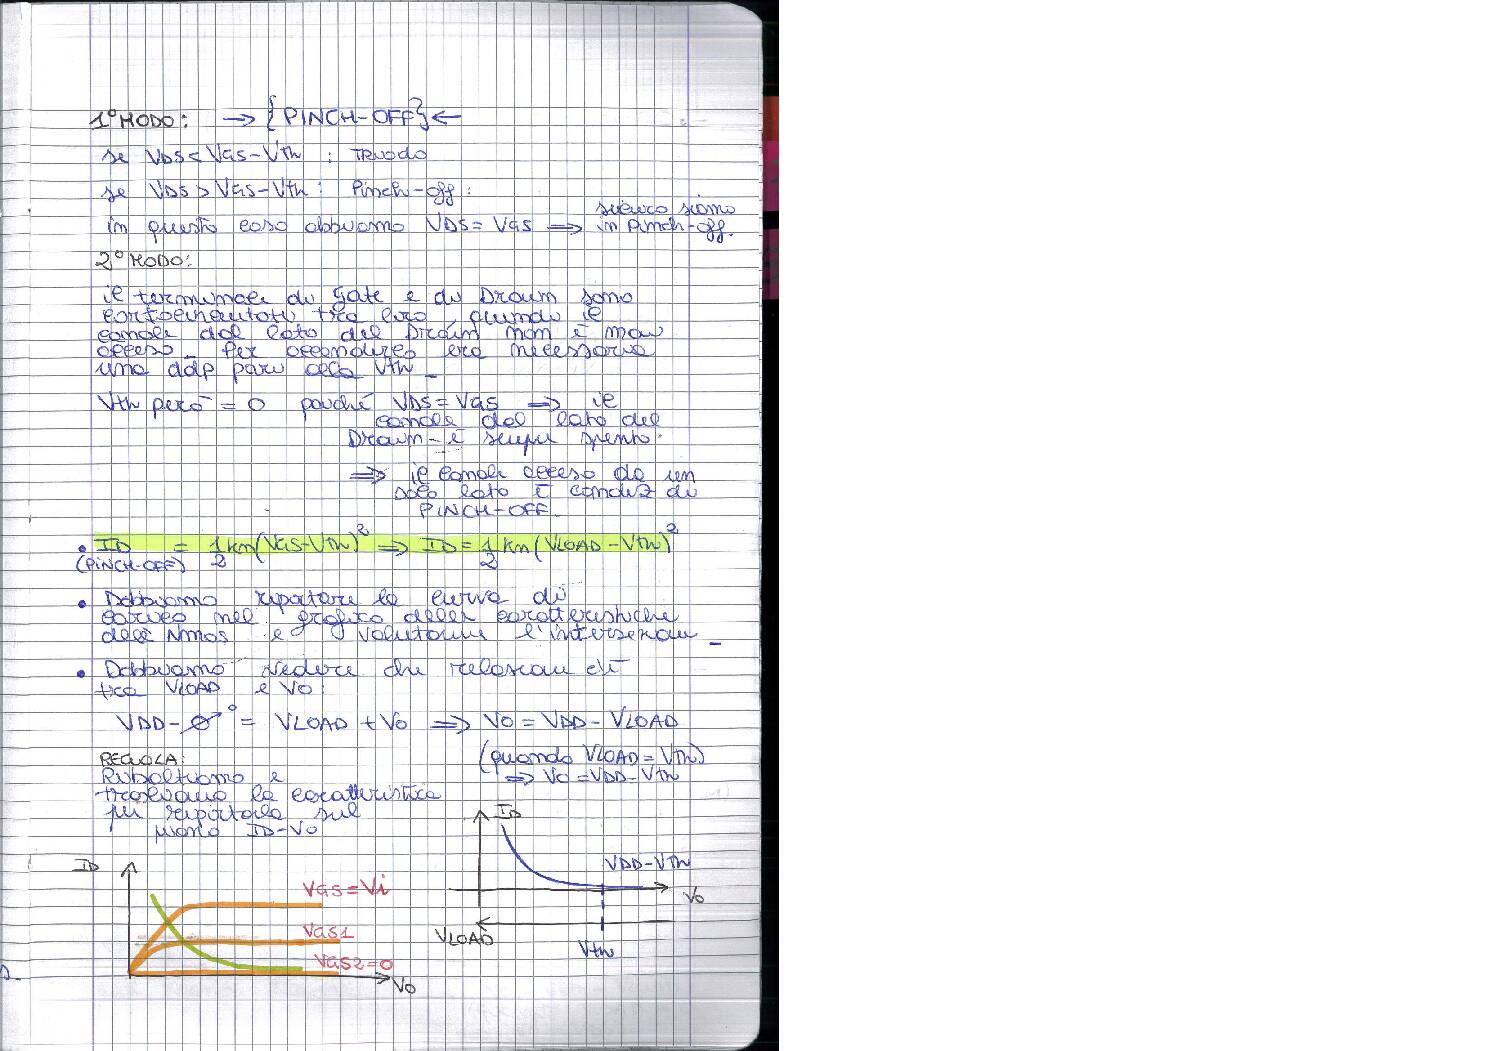 1° MODO: → {PINCH-OFF} ←
se VDS < VGS-Vth : TRIODO
se VDS > VGS-Vth : Pinch-off :
in questo caso abbiamo VDS = VGS ⟹ siamo
in Pinch-off.
2° MODO:
il terminale di Gate e di Drain sono
cortocircuitati tra loro, quindi il
canale dal lato del Drain non è mai
acceso. Per accendersi era necessaria
una ddp pari alla Vth _
Vth però = 0 poiché VDS = VGS ⟹ il
canale dal lato del
Drain è sempre spento.
⟹ il canale acceso da un
solo lato è condiz di
PINCH-OFF.
• ID = 1/2 kn (VGS-Vth)² ⟹ ID = 1/2 kn (VLOAD - Vth)²
(PINCH-OFF)
• Dobbiamo riportare la curva di
carico nel grafico delle caratteristiche
dell' NMOS e valutarne l'intersezione _
• Dobbiamo vedere che relazione c'è
tra VLOAD e VO:
VDD - 0 = VLOAD + VO ⟹ VO = VDD - VLOAD
(quando VLOAD = Vth)
⟹ VO = VDD - Vth
REGOLA:
Ribaltiamo e
trasliamo la caratteristica
per riportarla sul
piano ID-VO
ID
VDD-Vth
VO
VLOAD
Vth
ID
VGS = Vi
VGS1
VGS2 = 0
VO